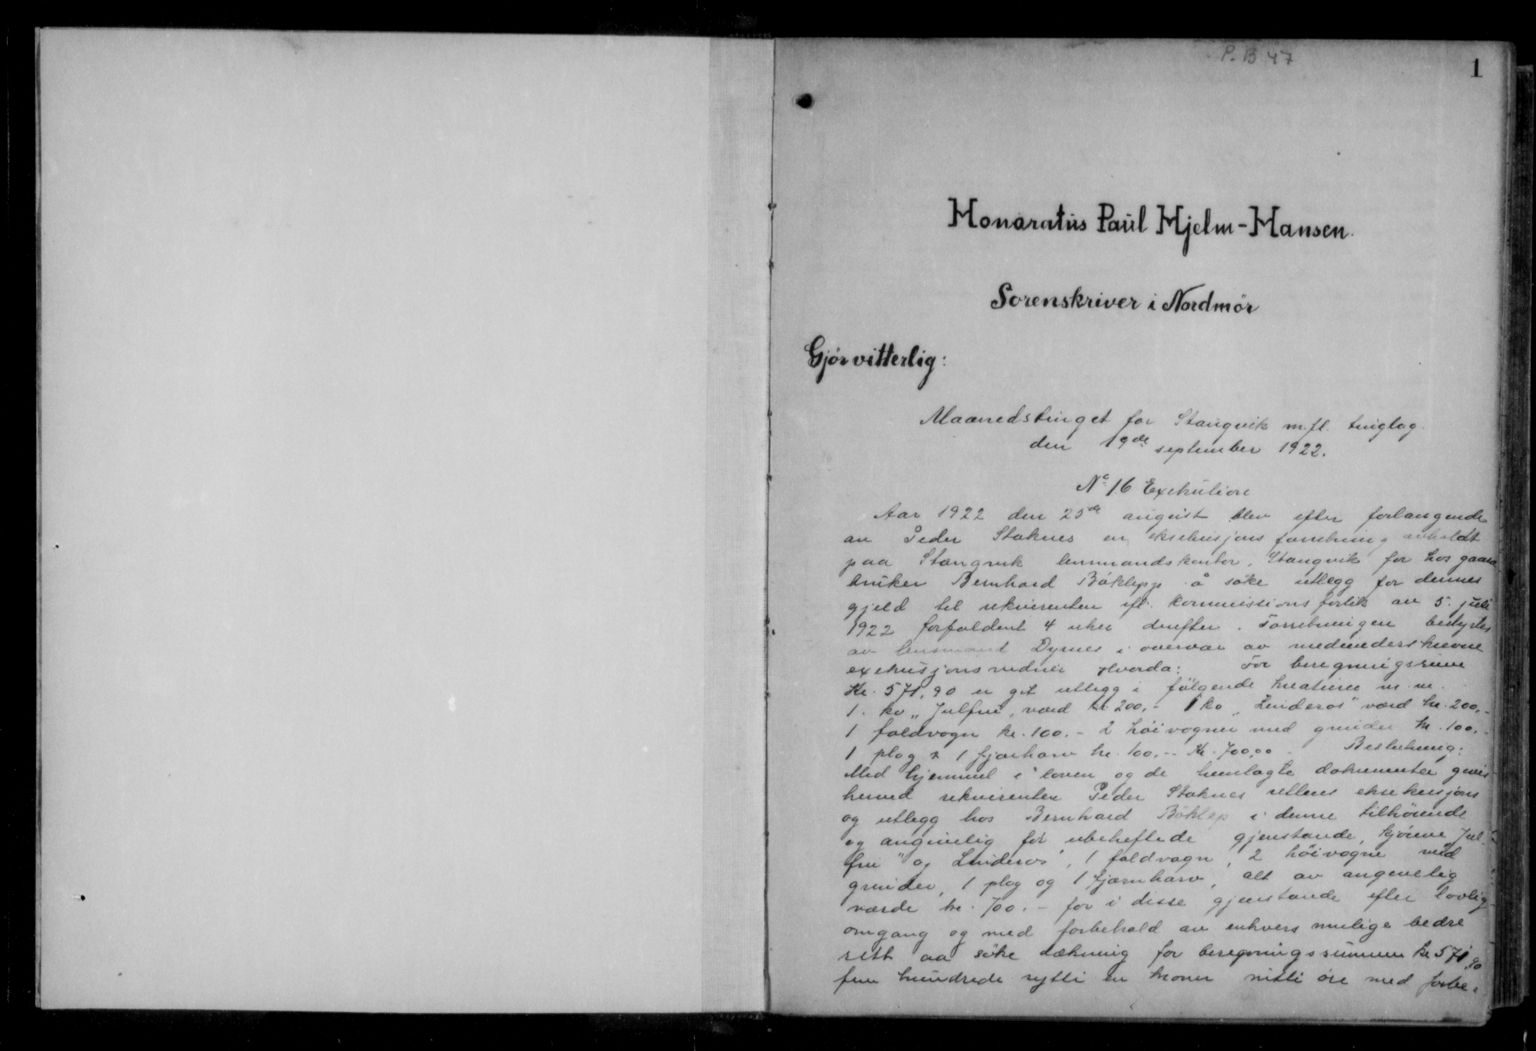 P.B 47
1
Honoratus Paul Hjelm-Hansen.
Sorenskriver i Nordmør
Gjør vitterlig:
Maanedstinget for Stangvik m.fl. tinglag
den 19de september 1922.
No 16 Exekution
Aar 1922 den 25de august blev efter forlangende
av Peder Staknes en eksekusjons forretning avholdt
paa Stangvik lensmandskontor, Stangvik for hos gaard
bruker Bernhard Böklepp å søke utlegg for dennes
gjeld til rekvirenten efl. kommissionsforlik av 5. juli
1922 forfaldent 4 uker derefter. Forretningen bestyrtes
av lensmand Dyrnes i overvær av medunderskrevne
exekusjonsvidner Hvorda: For beregningssum
Kr. 571,90 er git utlegg i følgende kreaturer m.m.
1. ko „Julfin", værd kr 200,- 1 ko „Linderos" værd kr. 200,-
1 foldvogn kr. 100.- 2 höivogner med grinder kr. 100,-
1 plog & 1 fjærharv kr. 100,-- Kr. 700,00 - Beslutning:
Med hjemmel i loven og de fremlagte dokumenter gives
herved rekvirenten Peder Staknes rettens eksekusjon
og utlegg hos Bernhard Böklep i denne tilhörende
og angivelig for ubeheftede gjenstande, kjörene Jul-
fin" og Linderos", 1 foldvogn, 2 höivogne med
grinder, 1 plog og 1 fjærnharv, alt av angivelig
værde kr. 700.- for i disse gjenstande efter lovlig
omgang og med forbehold av enhvers mulige bedre
rett aa søke dækning for beregningssummen kr 571,90
fem hundrede sytti en kroner nitti øre med forbe-